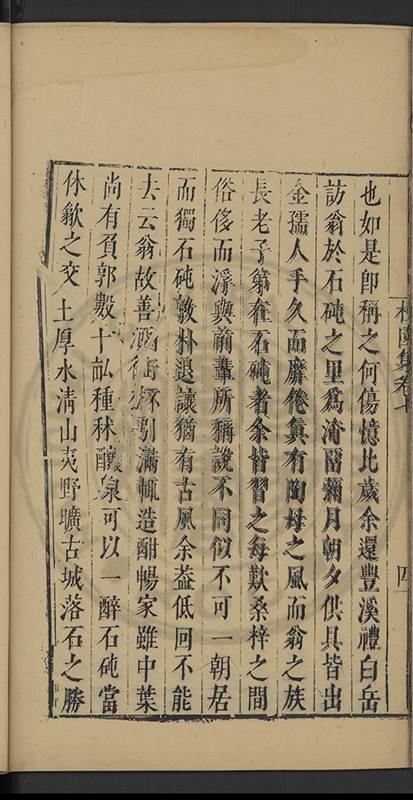 也如是卽稱之何傷憶比歲余還豐溪禮白岳
訪翁於石砘之里爲淹留彌月朝夕供具皆出
金孺人手久而靡倦眞有陶母之風而翁之族
長老子第在石砘者余皆習之每歎桑梓之間
俗侈而浮與前輩所稱說不同似不可一朝居
而獨石砘敦朴退讓猶有古風余葢低回不能
去云翁故善酒銜杯引滿輒造酣暢家雖中葉
尚有負郭數十畝種秫釀泉可以一醉石砘當
休歙之交土厚水淸山夷野曠古城落石之勝
集卷七